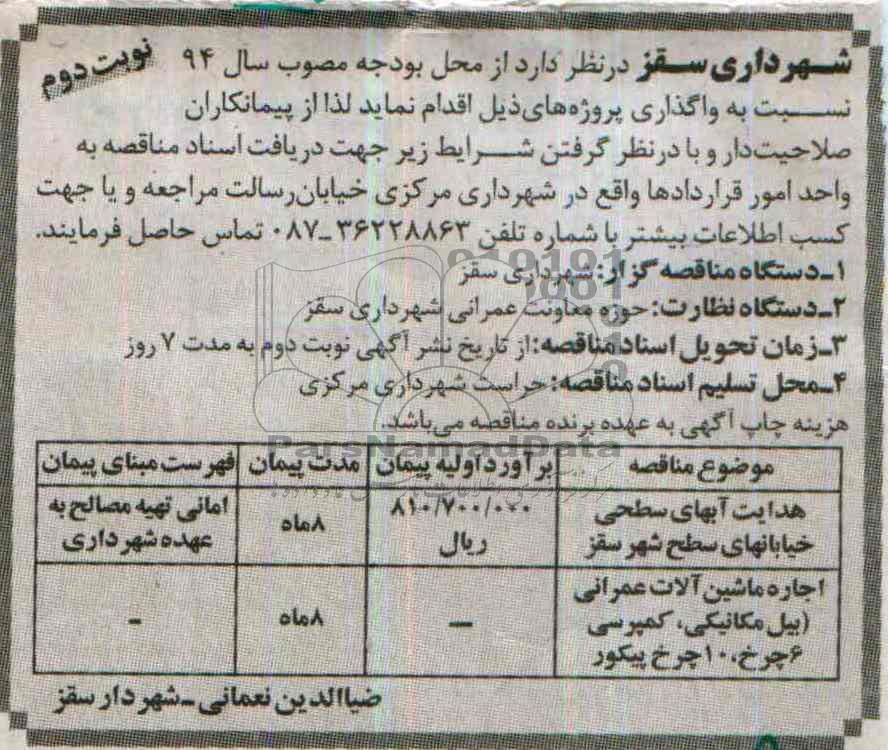 نوبت دوم
شهرداری سقز درنظر دارد از محل بودجه مصوب سال ۹۴
نسبت به واگذاری پروژه‌های ذیل اقدام نماید لذا از پیمانکاران
صلاحیت‌دار و با درنظر گرفتن شرایط زیر جهت دریافت اسناد مناقصه به
واحد امور قراردادها واقع در شهرداری مرکزی خیابان رسالت مراجعه و یا جهت
کسب اطلاعات بیشتر با شماره تلفن ۳۶۲۲۸۸۶۳ـ۰۸۷ تماس حاصل فرمایند.
۱ـ دستگاه مناقصه گزار: شهرداری سقز
۲ـ دستگاه نظارت: حوزه معاونت عمرانی شهرداری سقز
۳ـ زمان تحویل اسناد مناقصه: از تاریخ نشر آگهی نوبت دوم به مدت ۷ روز
۴ـ محل تسلیم اسناد مناقصه: حراست شهرداری مرکزی
هزینه چاپ آگهی به عهده برنده مناقصه می‌باشد.
ParsNamadData
موضوع مناقصه برآورد اولیه پیمان مدت پیمان فهرست مبنای پیمان
هدایت آبهای سطحی ۸۱۰/۷۰۰/۰۰۰ ۸ماه امانی تهیه مصالح به
خیابانهای سطح شهر سقز ریال عهده شهرداری
اجاره ماشین آلات عمرانی
(بیل مکانیکی، کمپرسی — ۸ماه -
۶چرخ، ۱۰چرخ پیکور
ضیاالدین نعمانی ـ شهردار سقز